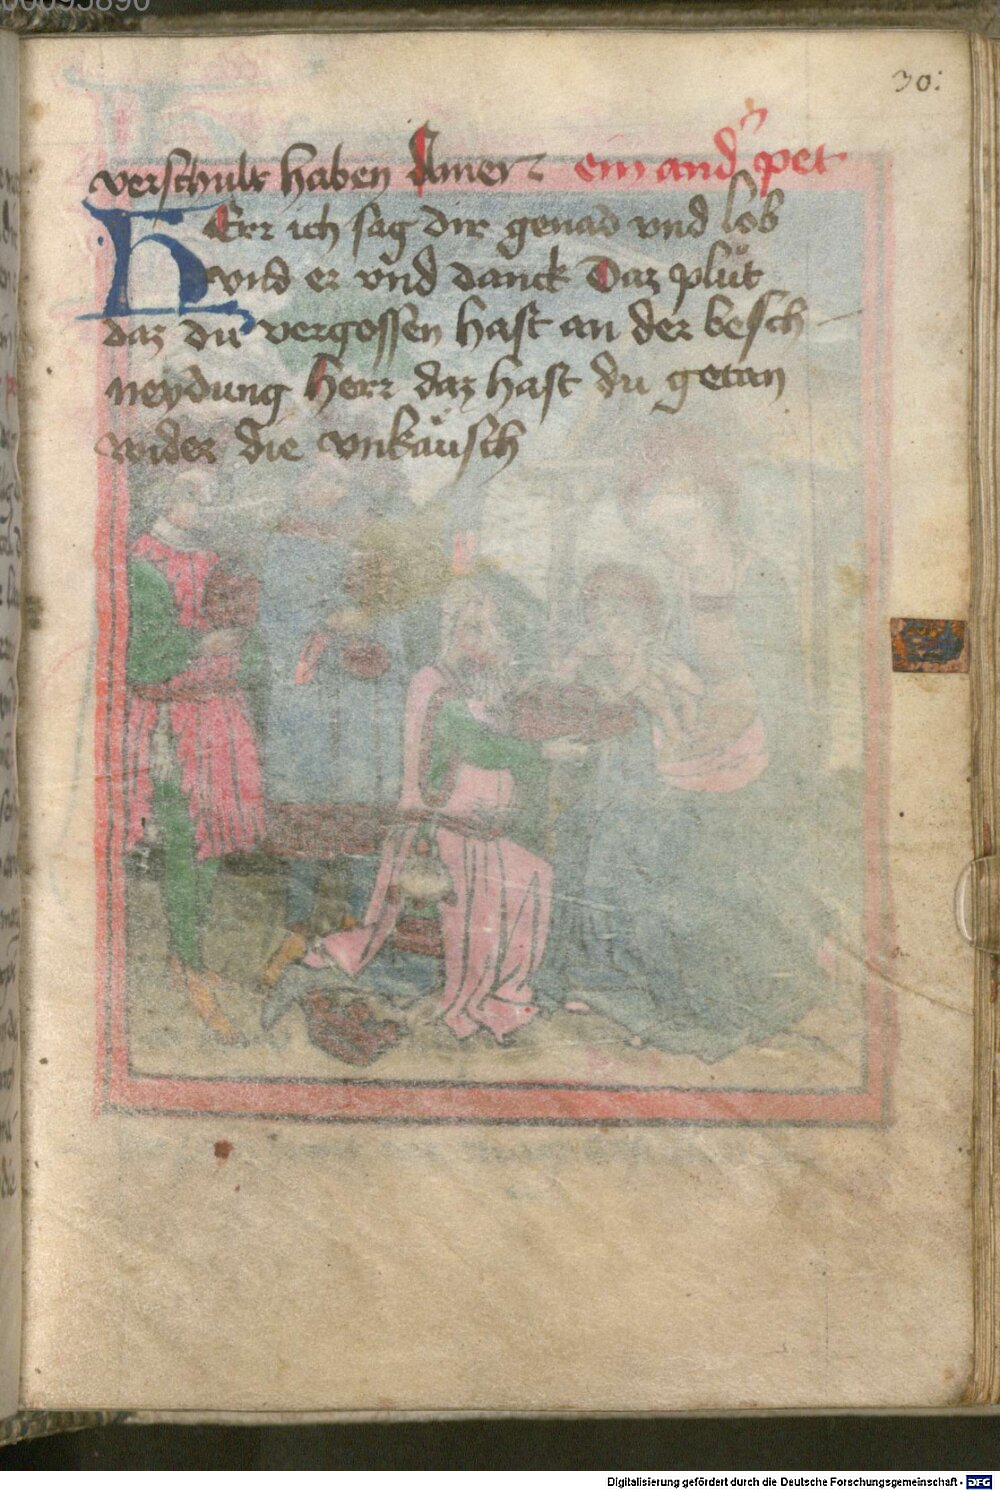 30:
verschult haben Amen ein and͛ pet
HErr ich sag dir genad vnd lob
vnd er vnd danck Daz plůt
daz du vergossen hast an der besch
neydung herr daz hast du getan
wider die vnkäusch
Digitalisierung gefördert durch die Deutsche Forschungsgemeinschaft - DFG